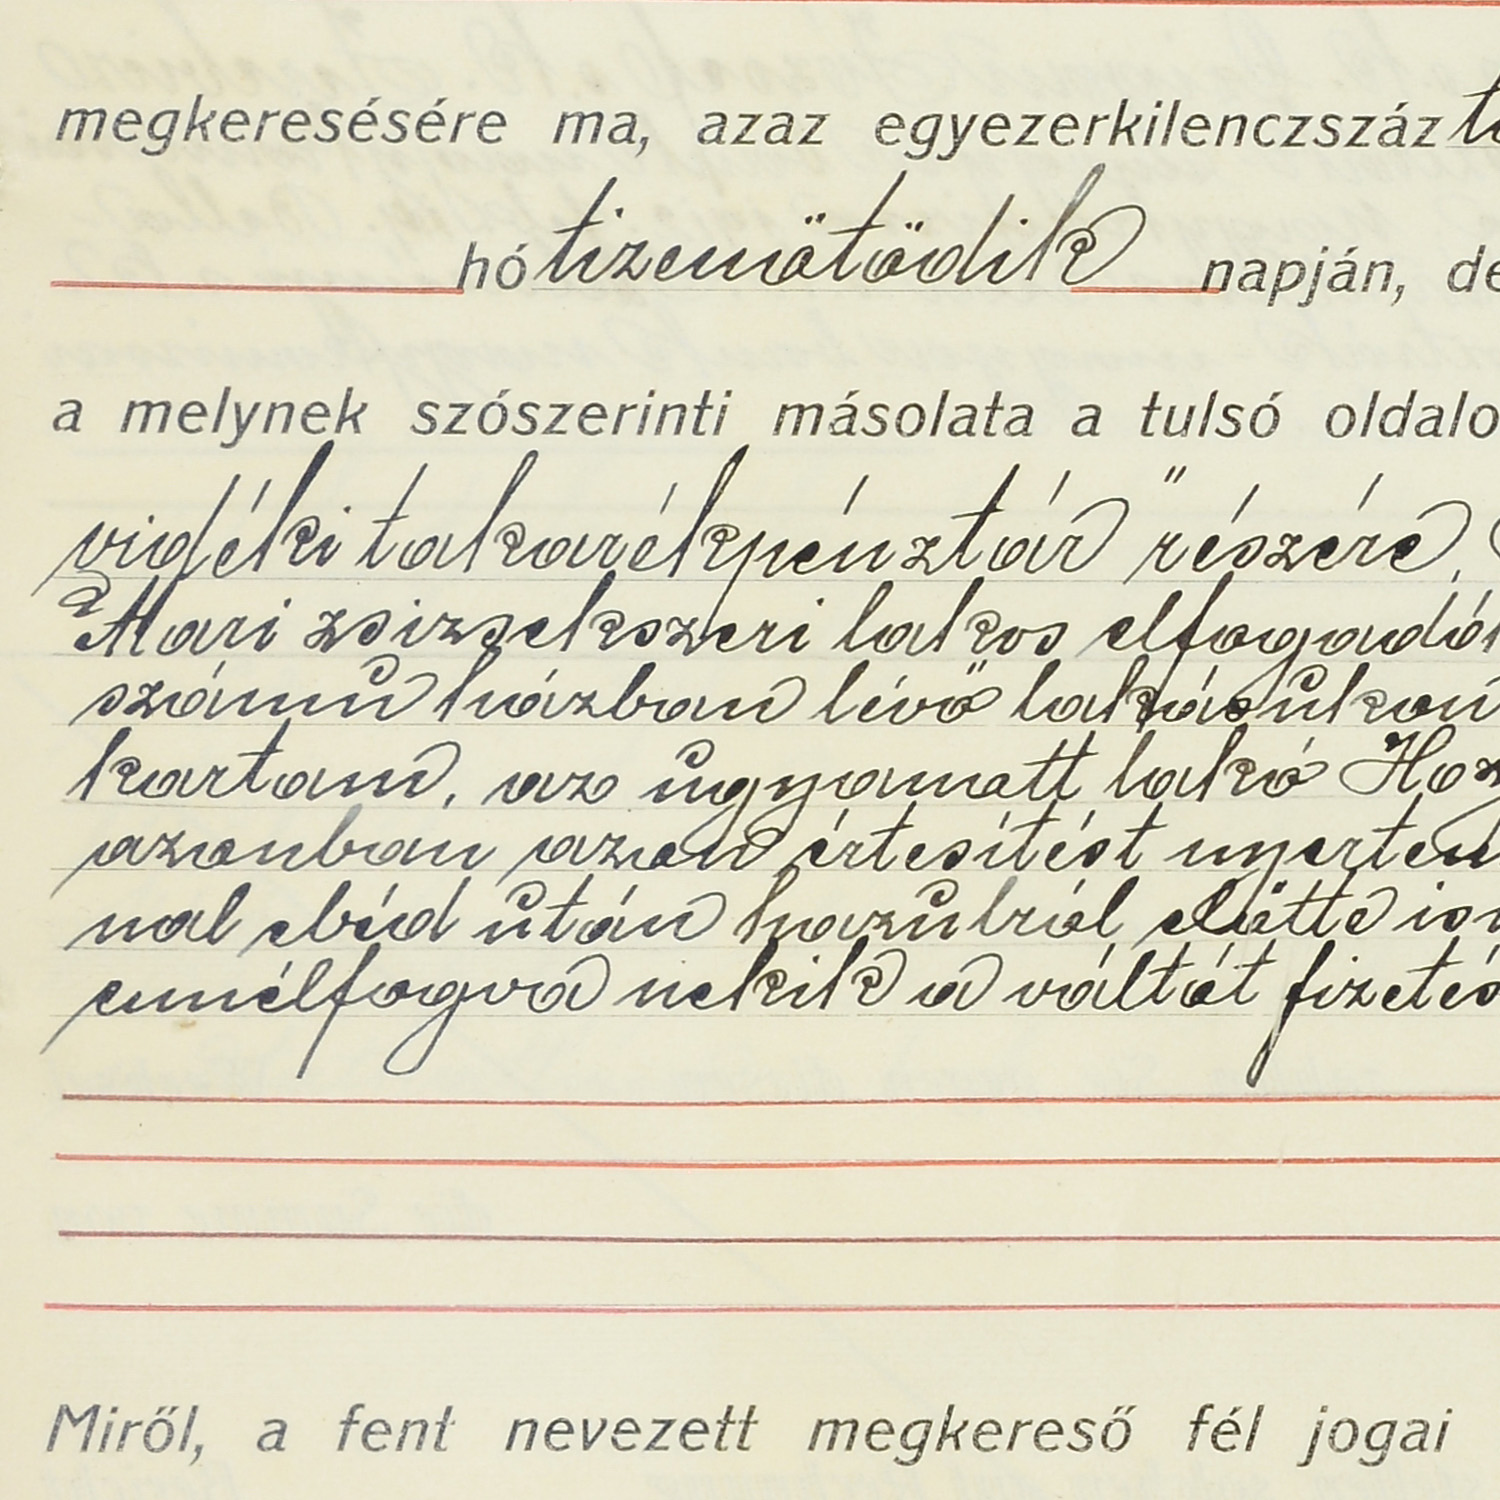 megkeresésére ma, azaz egyezerkilenczszáz
hó tizenötödik napján, de
a melynek szószerinti másolata a tulsó oldalo
vidéki takarékpénztár" részére,
Mari zsizsekszeri lakos elfogadó
számu házban lévő lakásukon
kartam, az ugyanott lakó
azonban azon értesítést nyertem
nal ebéd után hazulról előtte
ennélfogva nekik a váltót fizetés
Miről, a fent nevezett megkereső fél jogai